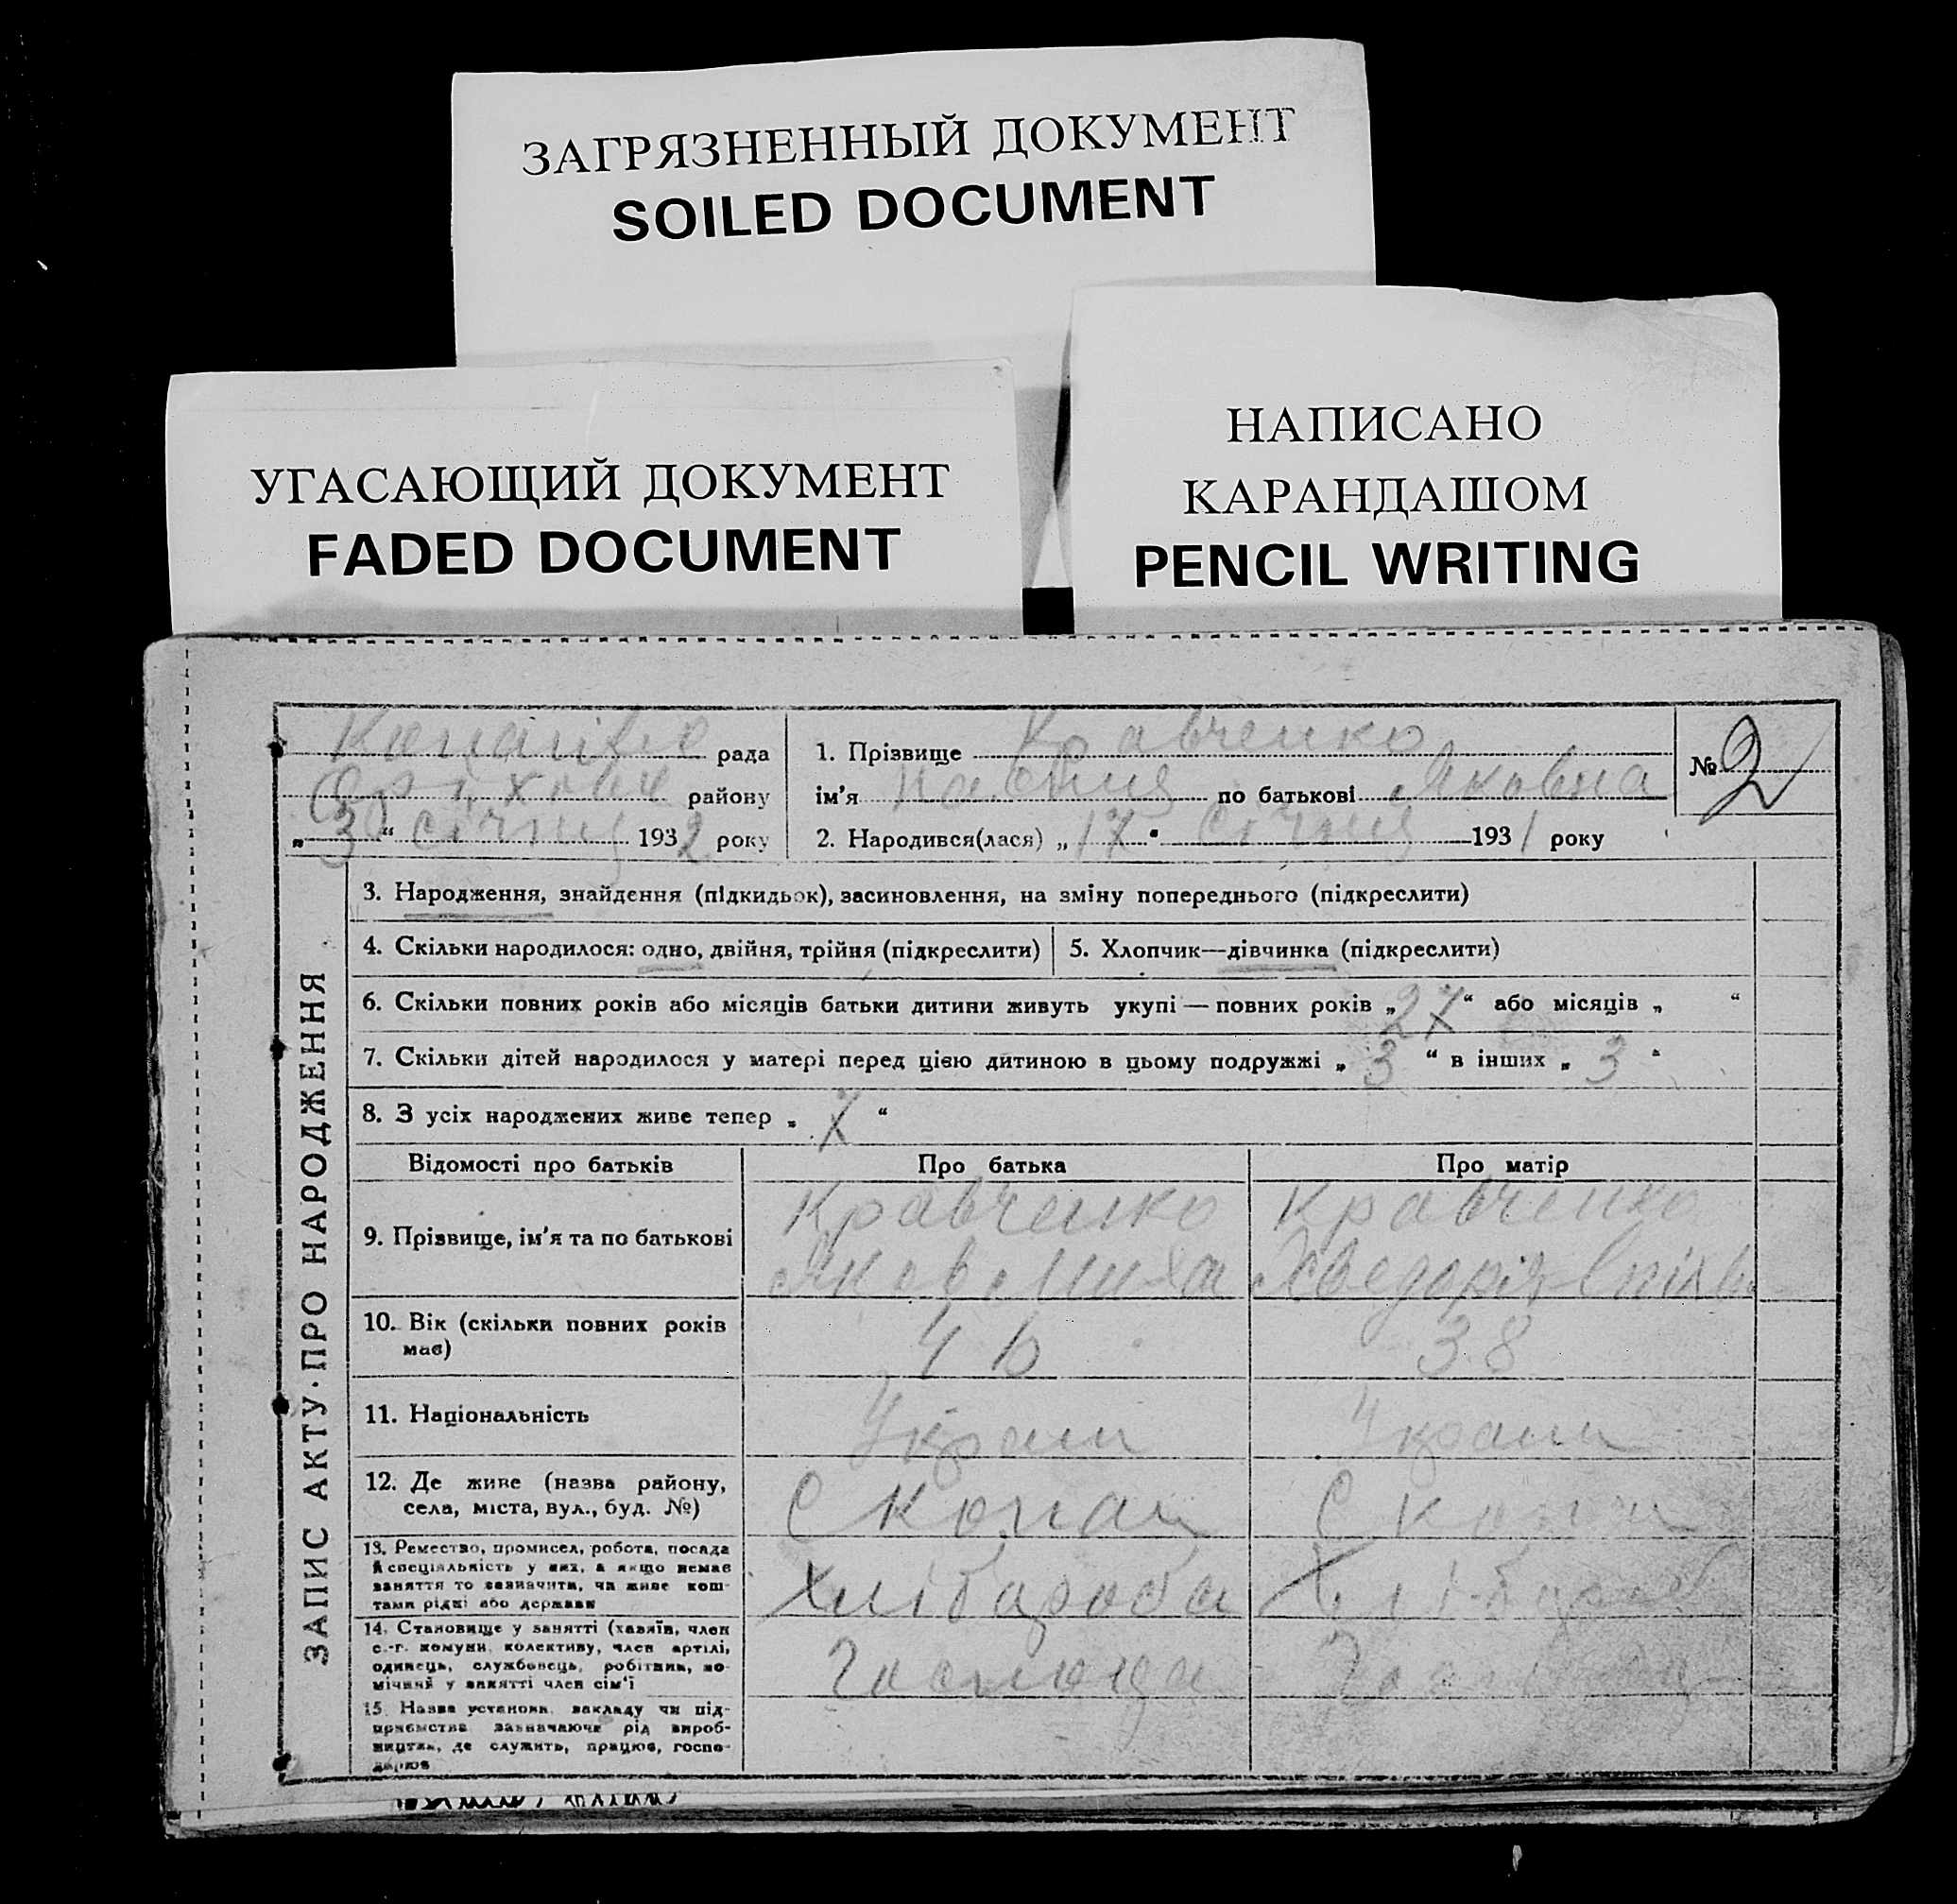 ЗАГРЯЗНЕННЫЙ ДОКУМЕНТ
SOILED DOCUMENT
УГАСАЮЩИЙ ДОКУМЕНТ
FADED DOCUMENT
НАПИСАНО
КАРАНДАШОМ
PENCIL WRITING
рада
району
„30“ січня 1932 року
1. Прізвище Кравченко
ім'я по батькові Яковна
2. Народився(лася) „17“ січня 1931 року
№ 2
ЗАПИС АКТУ ПРО НАРОДЖЕННЯ
3. Народження, знайдення (підкидьок), засиновлення, на зміну попереднього (підкреслити)
4. Скільки народилося: одно, двійня, трійня (підкреслити)
5. Хлопчик—дівчинка (підкреслити)
6. Скільки повних років або місяців батьки дитини живуть укупі — повних років „27“ або місяців „ “
7. Скільки дітей народилося у матері перед цією дитиною в цьому подружжі „3“ в інших „3“
8. З усіх народжених живе тепер „7“
Відомості про батьків
Про батька
Про матір
9. Прізвище, ім'я та по батькові
Кравченко
Яков Миха
Кравченко
10. Вік (скільки повних років
має)
38
11. Національність
Украин
Украин
12. Де живе (назва району,
села, міста, вул., буд. №)
С Копан
С Копан
13. Ремество, промисел, робота, посада
й спеціяльність у них, а якщо немає
заняття то зазначити, чи живе кош-
тами рідні або держави
Хлібароба
14. Становище у занятті (хазяїн, член
с.-г. комуни, колективу, член артілі,
одинець, службовець, робітник, по-
мічний у занятті член сім'ї
15. Назва установи, закладу чи під-
приємства зазначаючи рід вироб-
ництва, де служить, працює, госпо-
дарює